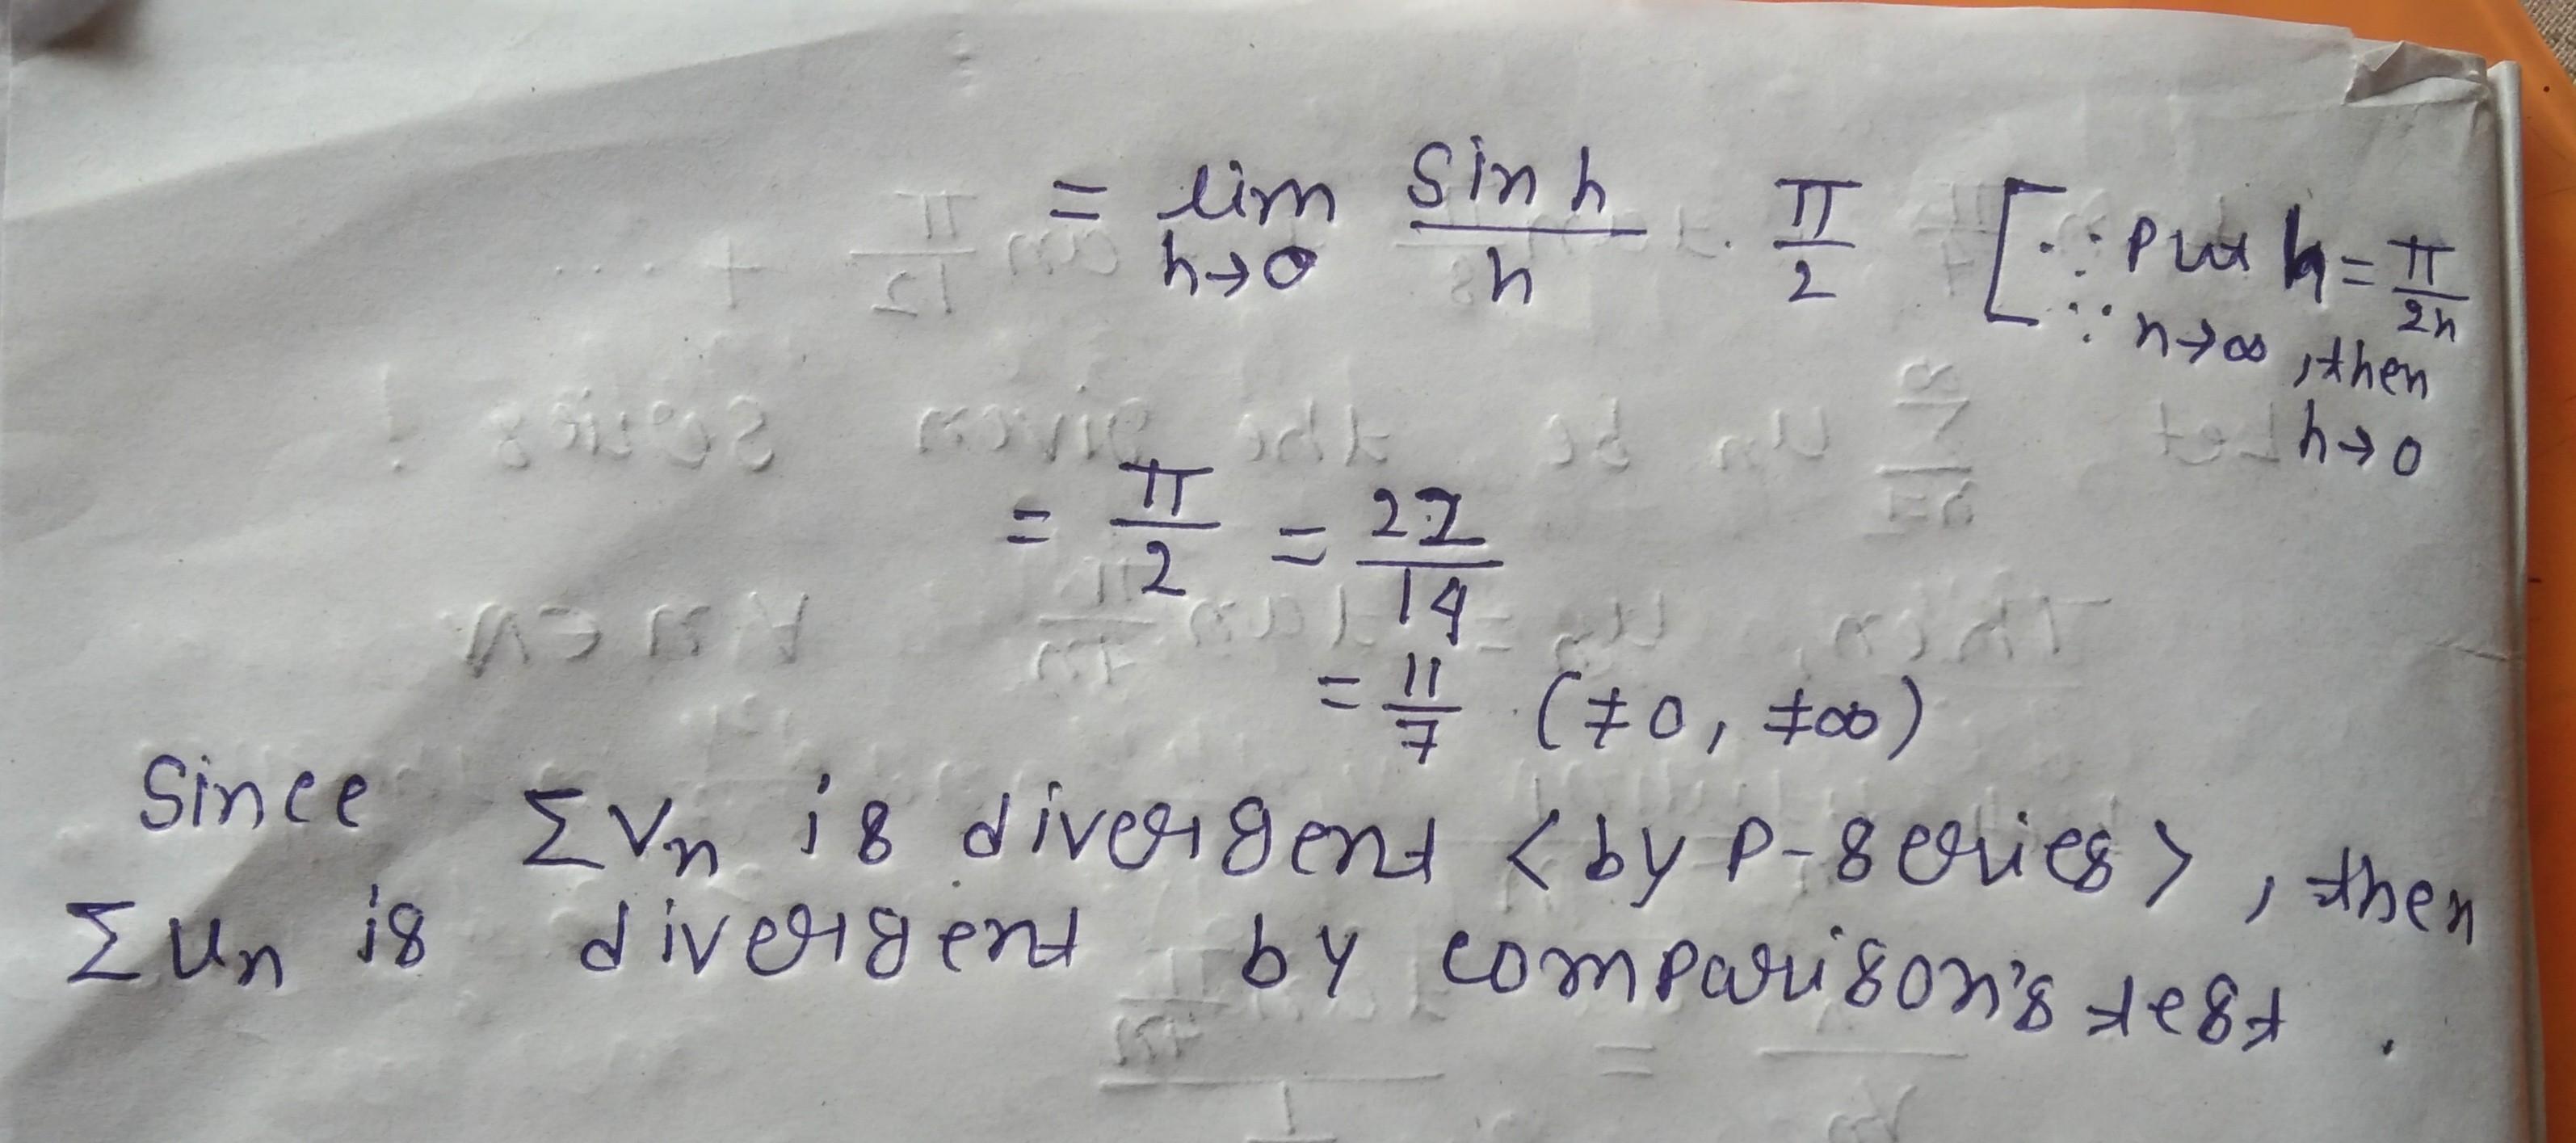 = lim h→0 sin h / h · π/2 [∵ put h = π/2n
∵ n→∞, then
h→0
= π/2 = 22/14
= 11/7 (≠0, ≠∞)
Since ΣVn is divergent <by P-series>, then
Σun is divergent by comparison's test.